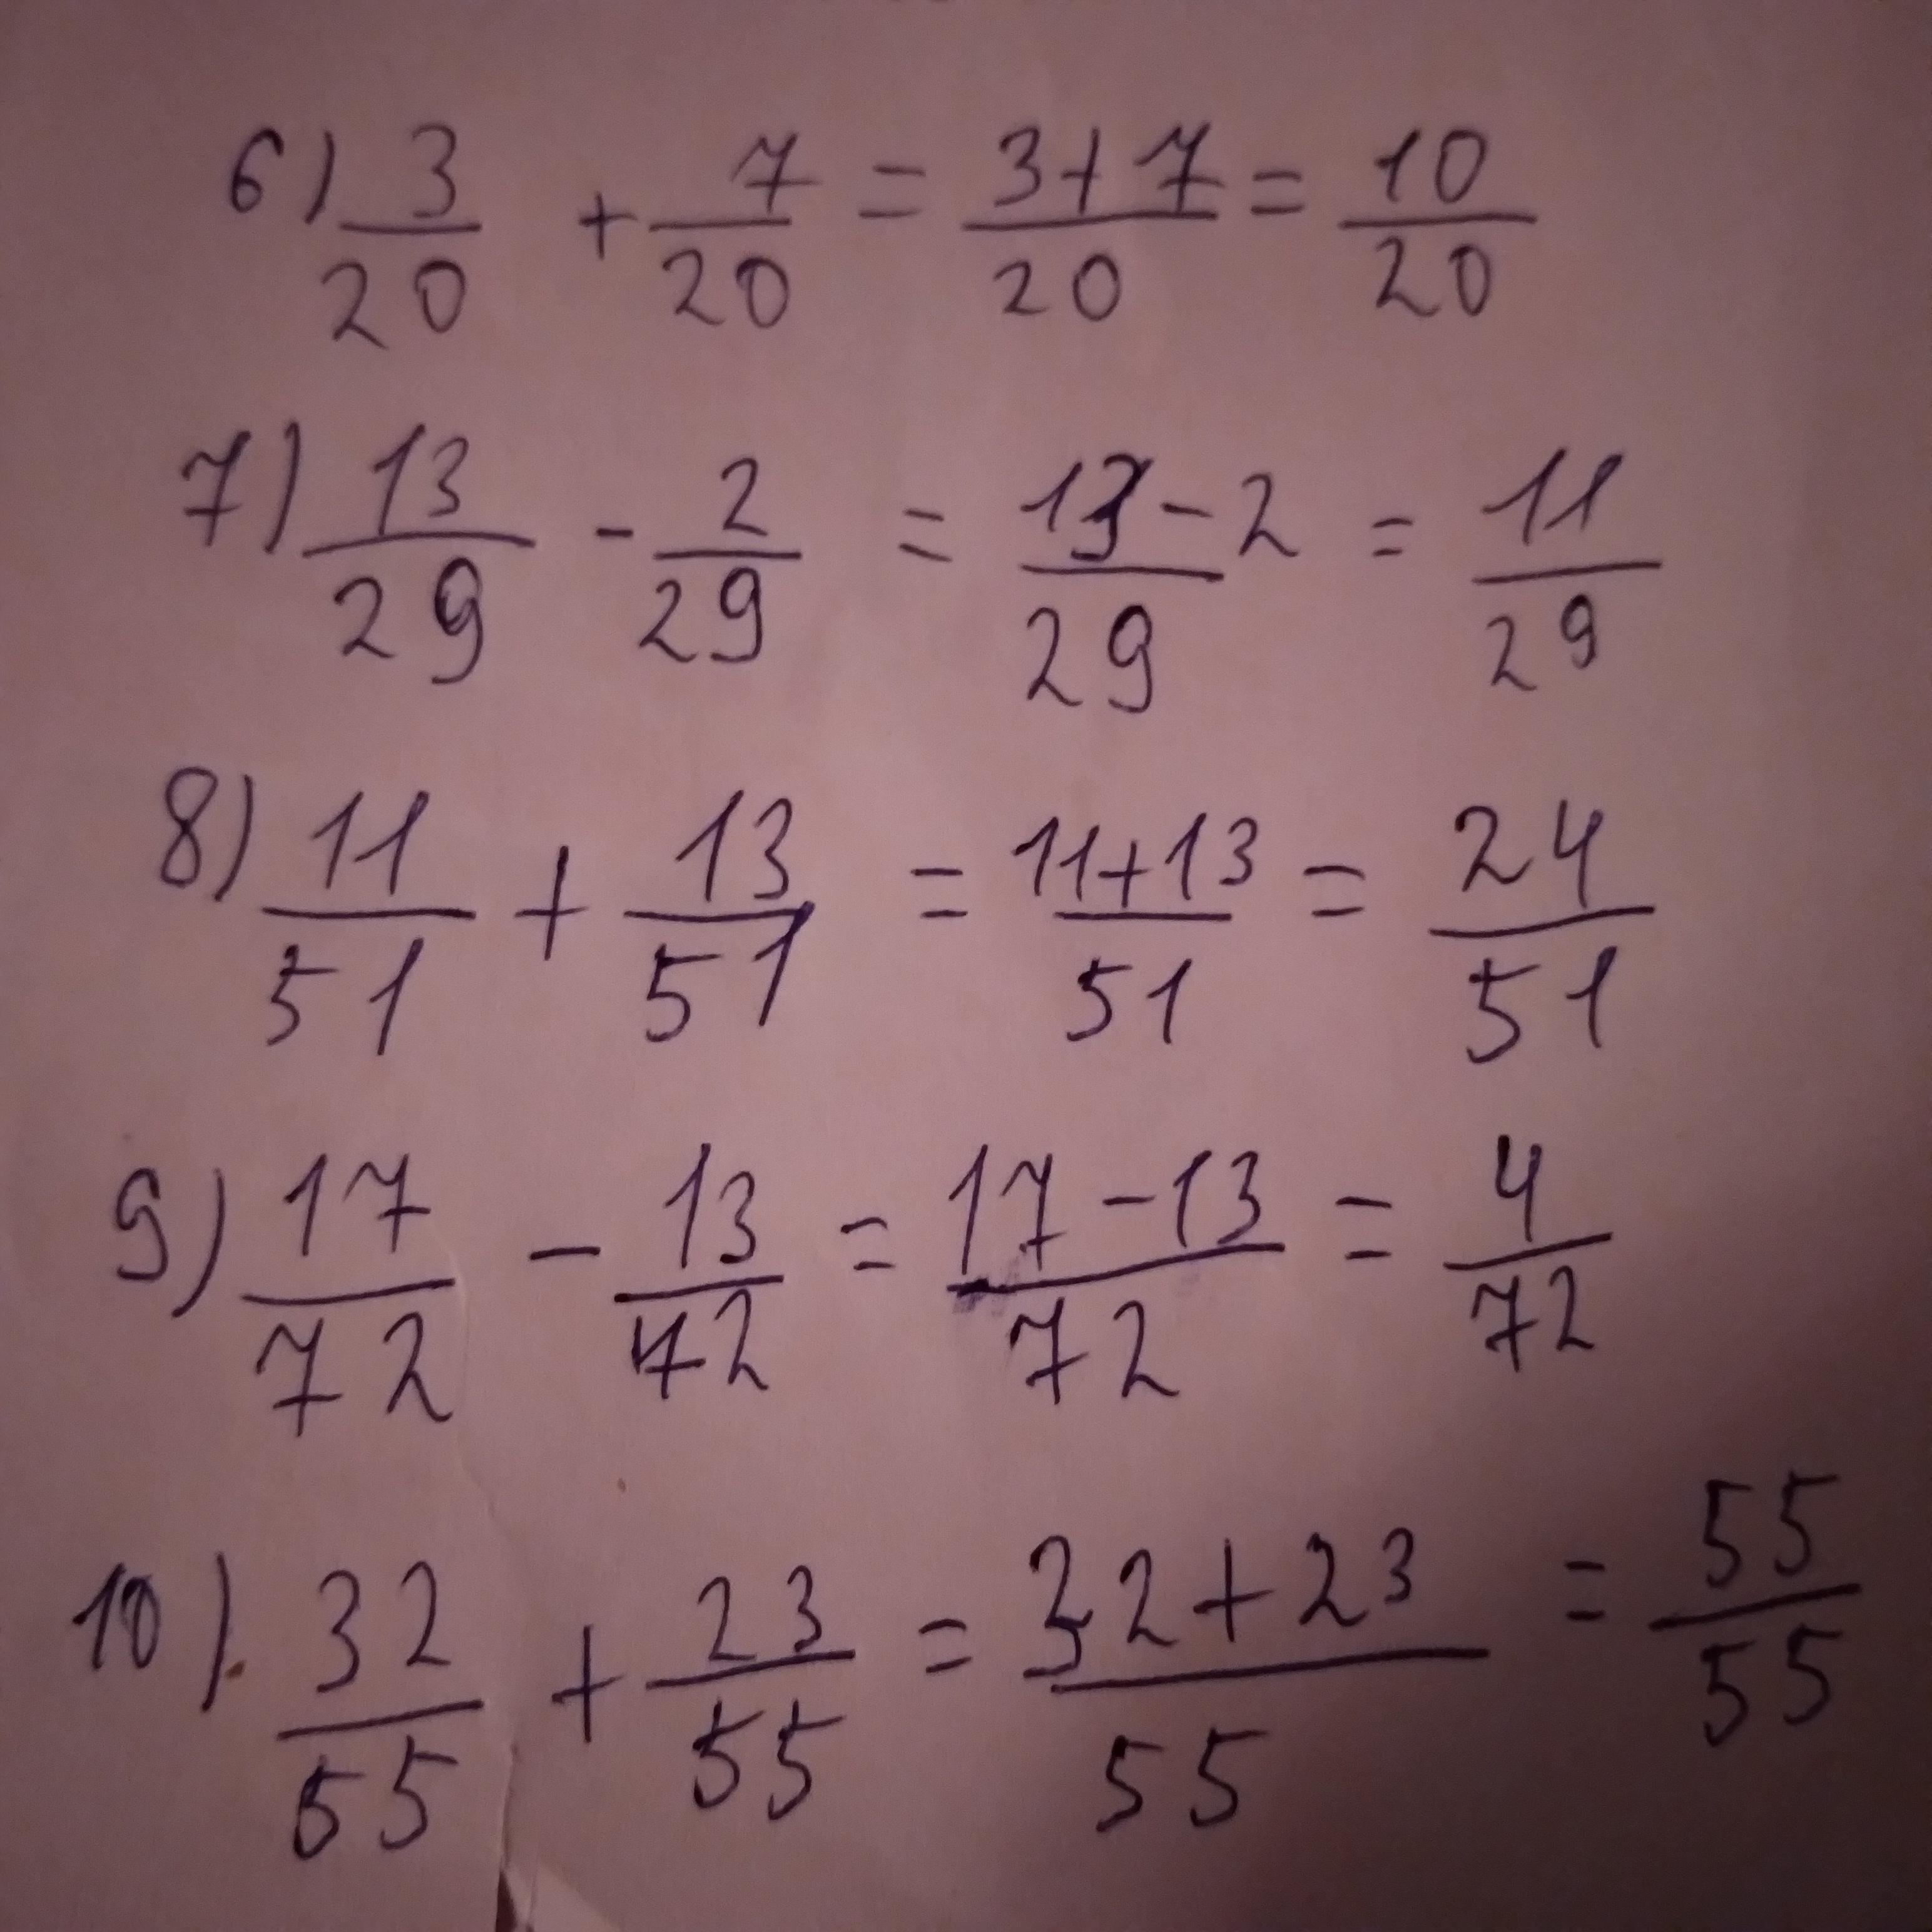 6) 3/20 + 7/20 = 3+7/20 = 10/20
7) 13/29 - 2/29 = 13-2/29 = 11/29
8) 11/51 + 13/51 = 11+13/51 = 24/51
9) 17/72 - 13/72 = 17-13/72 = 4/72
10) 32/55 + 23/55 = 32+23/55 = 55/55